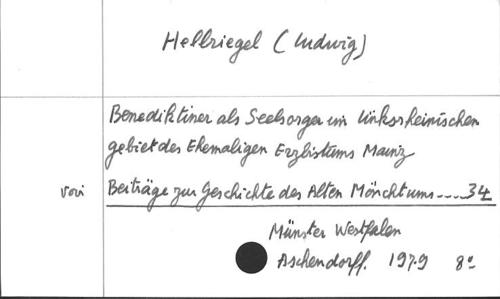 Hellriegel (Ludwig)
Benediktiner als Seelsorger im linksrheinischen
gebiet des Ehemaligen Erzbistums Mainz
voir Beiträge zur Geschichte des Alten Mönchtums....34
Münster Westfalen
Aschendorff. 1979 8º